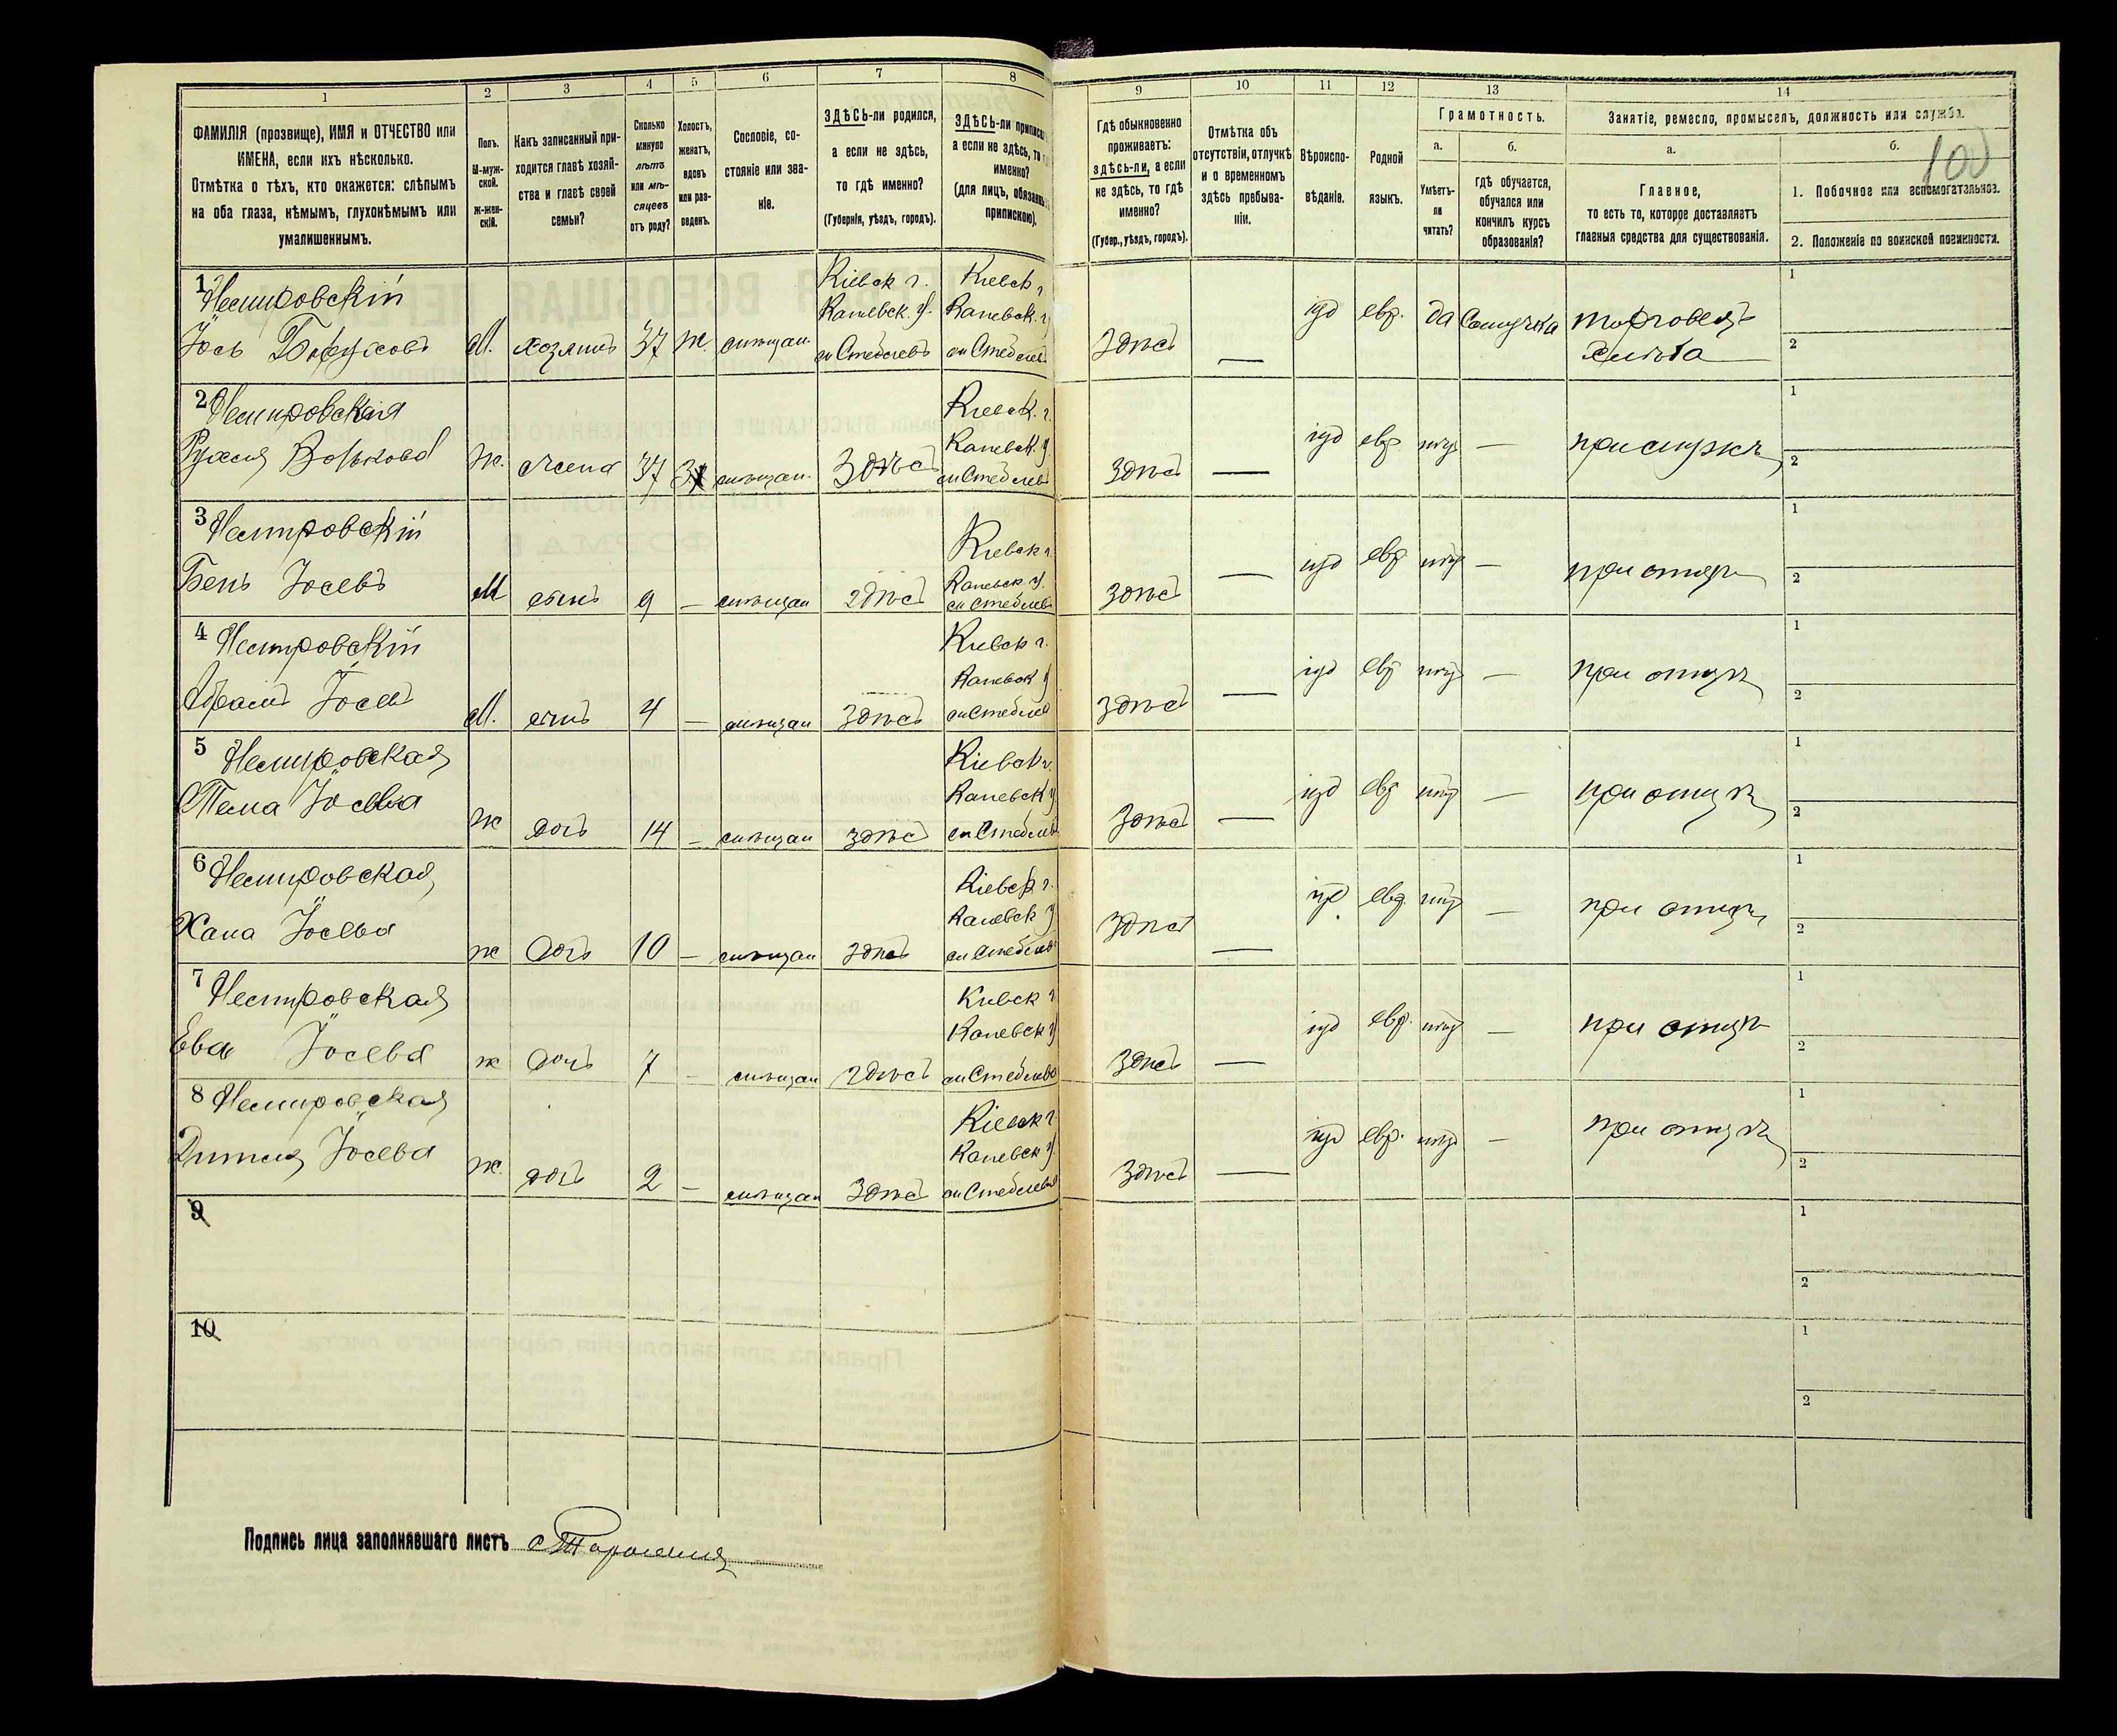 1
2
3
4
5
6
7
8
ФАМИЛІЯ (прозвище), ИМЯ и ОТЧЕСТВО или
ИМЕНА, если ихъ нѣсколько.
Отмѣтка о тѣхъ, кто окажется: слѣпымъ
на оба глаза, нѣмымъ, глухонѣмымъ или
умалишеннымъ.
Полъ.
М-муж-
ской.
Ж-жен-
скій.
Какъ записанный при-
ходится главѣ хозяй-
ства и главѣ своей
семьи?
Сколько
минуло
лѣтъ
или мѣ-
сяцевъ
отъ роду?
Холостъ,
женатъ,
вдовъ
или раз-
веденъ.
Сословіе, со-
стояніе или зва-
ніе.
ЗДѢСЬ-ли родился,
а если не здѣсь,
то гдѣ именно?
(Губернія, уѣздъ, городъ).
ЗДѢСЬ-ли
а если не здѣсь, то
именно?
(для лицъ,
припискою).
9
10
11
12
13
14
Гдѣ обыкновенно
проживаетъ:
здѣсь-ли, а если
не здѣсь, то гдѣ
именно?
(Губер., уѣздъ, городъ).
Отмѣтка объ
отсутствіи, отлучкѣ
и о временномъ
здѣсь пребыва-
ніи.
Вѣроиспо-
вѣданіе.
Родной
языкъ.
Грамотность.
а.
Умѣетъ-
ли
читать?
б.
гдѣ обучается,
обучался или
кончилъ курсъ
образованія?
Занятіе, ремесло, промыселъ, должность или служба.
100
а.
Главное,
то есть то, которое доставляетъ
главныя средства для существованія.
б.
1. Побочное или вспомогательное.
2. Положеніе по воинской повинности.
1 Немировскій
Іось Боруховъ
М. хозяинъ 37 ж. мѣщан.
Кіевск г.
Каневск. у.
м Стеблевъ
Кіевск г
Каневск. у
м Стеблев
Здѣсь — іуд евр. да Самоучка
торговецъ
хлѣба
1
2
2 Немировская
Волькова
Ж. жена 37 мѣщан. Здѣсь
Кіевск. г.
Каневск. у
м Стеблев
Здѣсь — іуд евр нѣт —
1
2
3 Немировскій
Бень Іосевъ
М сынъ 9 — мѣщан здѣсь
Кіевск г
Каневск у.
м Стеблев
Здѣсь — іуд евр нѣт — при отцѣ
1
2
4 Немировскій
Абрамъ Іосевъ
М. сынъ 4 — мѣщан Здѣсь
Кіевск г.
Каневск у
м Стеблев
Здѣсь — іуд евр нѣт — при отцѣ
1
2
5 Немировская
Іосева
ж дочь 14 — мѣщан здѣсь
Кіевск г.
Каневск у
м Стеблев
Здѣсь — іуд евр нѣт — при отцѣ
1
2
6 Немировская
Хана Іосева
ж дочь 10 — мѣщан здѣсь
Кіевск г.
Каневск у
м Стеблев
Здѣсь — іуд евр. нѣт — при отцѣ
1
2
7 Немировская
Ева Іосева
ж дочь 7 — мѣщан здѣсь
Кіевск г
Каневск у
м Стеблев
Здѣсь — іуд евр. нѣт — при отцѣ
1
2
8 Немировская
Іосева
Ж. дочь 2 — мѣщан Здѣсь
Кіевск г.
Каневск у
м Стеблев
Здѣсь — іуд евр. нѣт — при отцѣ
1
2
9
1
2
10
1
2
Подпись лица заполнявшаго листъ